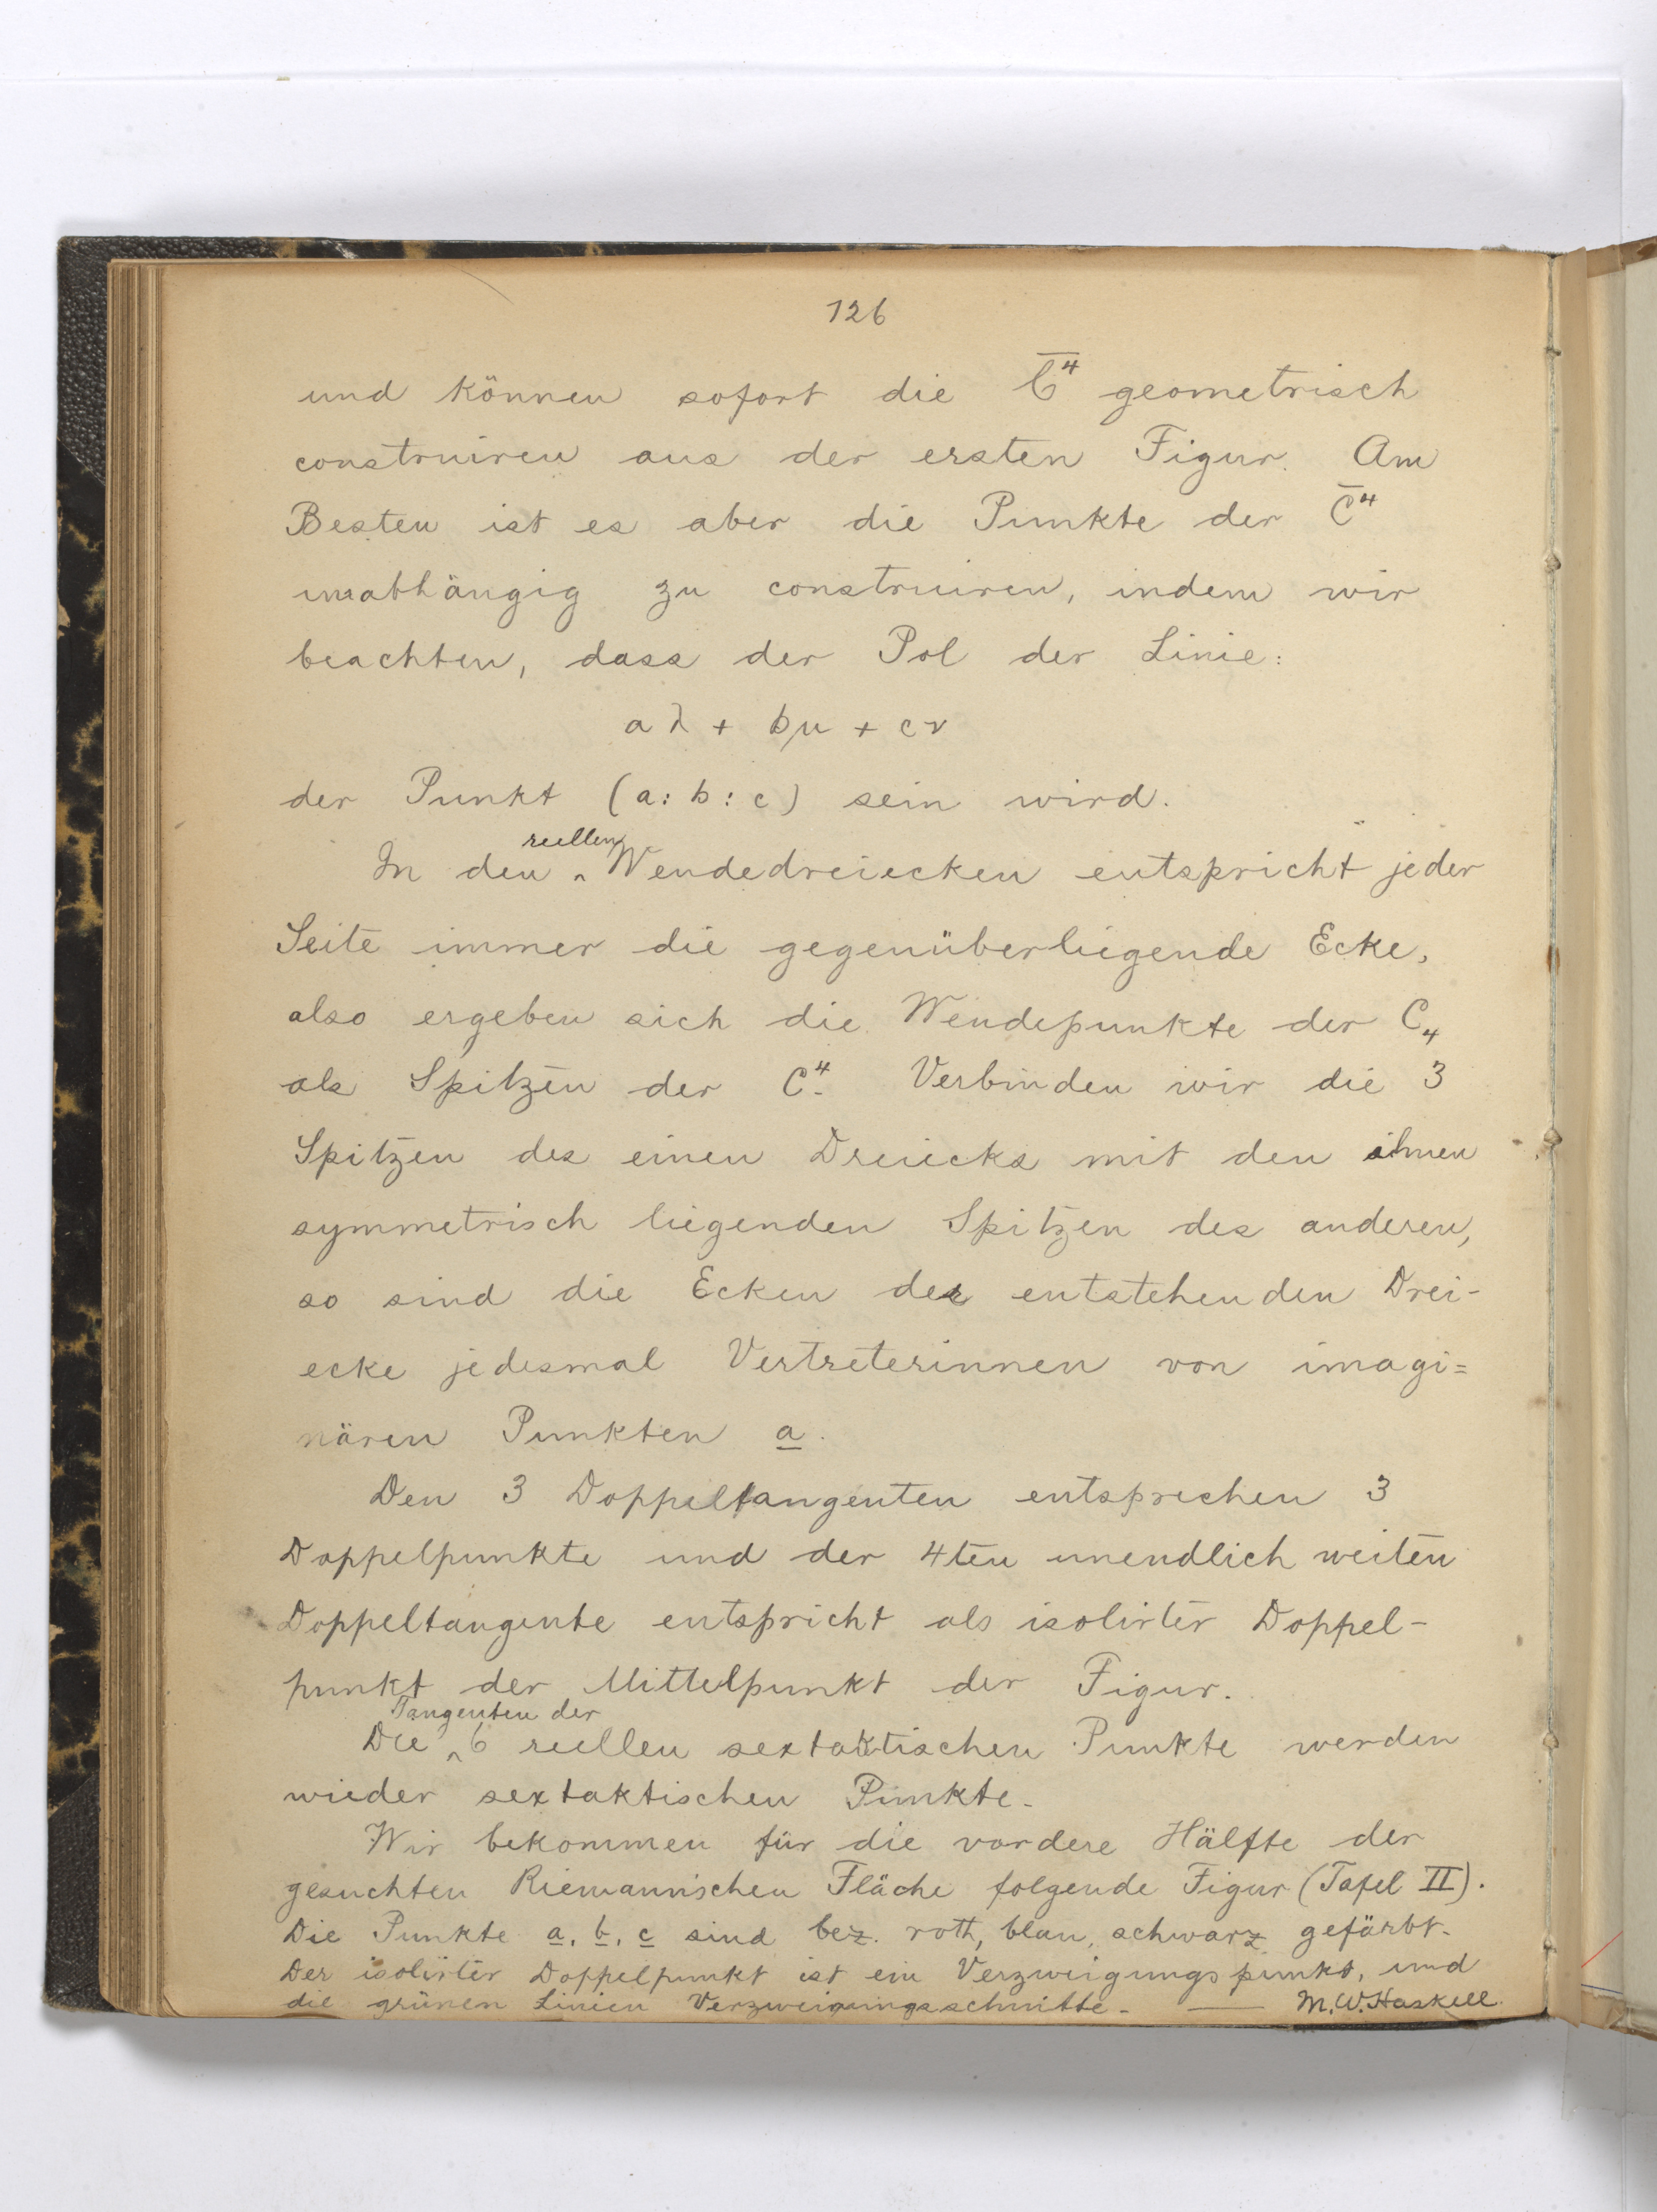 126
und können sofort die C̅⁴ geometrisch
construiren aus der ersten Figur. Am
Besten ist es aber die Punkte der C̅⁴
unabhängig zu construiren, indem wir
beachten, dass der Pol der Linie:
aλ + bμ + cν
der Punkt (a : b : c) sein wird.
reellen
In den ‸ Wendedreiecken entspricht jeder
Seite immer die gegenüberliegende Ecke,
also ergeben sich die Wendepunkte der C₄
als Spitzen der C⁴. Verbinden wir die 3
Spitzen des einen Dreiecks mit den ihnen
symmetrisch liegenden Spitzen des anderen,
so sind die Ecken der entstehenden Drei-
ecke jedesmal Vertreterinnen von imagi=
nären Punkten a.
Den 3 Doppeltangenten entsprechen 3
Doppelpunkte und der 4ten unendlich weiten
Doppeltangente entspricht als isolirter Doppel-
punkt der Mittelpunkt der Figur.
Tangenten der
Die ‸ 6 reellen sextaktischen Punkte werden
wieder sextaktischen Punkte.
Wir bekommen für die vordere Hälfte der
gesuchten Riemann'schen Fläche folgende Figur (Tafel II).
Die Punkte a, b, c sind bez. roth, blau, schwarz gefärbt.
Der isolirter Doppelpunkt ist ein Verzweigungspunkt, und
die grünen Linien Verzweigungsschnitte. — M.W.Haskell.